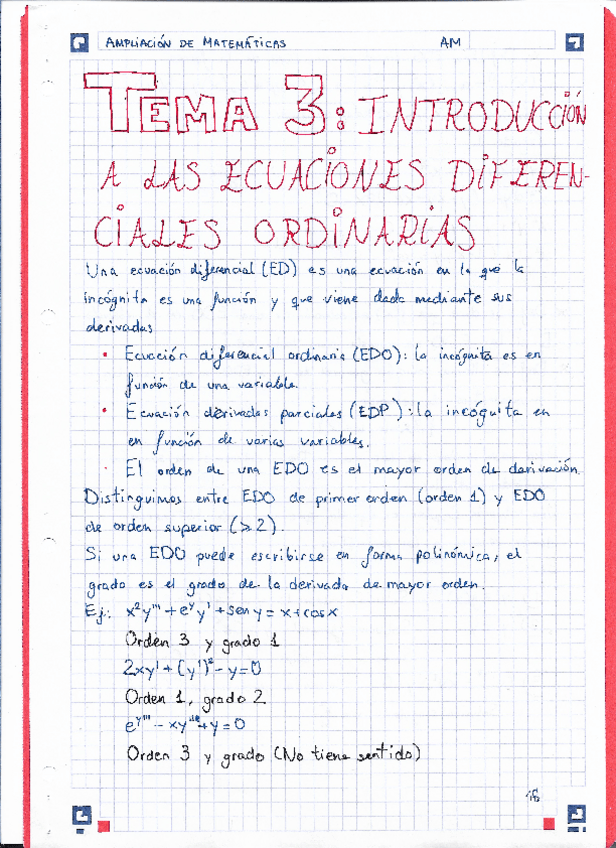 AMPLIACIÓN DE MATEMÁTICAS AM
TEMA 3: INTRODUCCIÓN
A LAS ECUACIONES DIFEREN-
CIALES ORDINARIAS
Una ecuación diferencial (ED) es una ecuación en la que la
incógnita es una función y que viene dada mediante sus
derivadas
• Ecuación diferencial ordinaria (EDO): la incógnita es en
función de una variable.
• Ecuación derivadas parciales (EDP): la incógnita en
en función de varias variables.
· El orden de una EDO es el mayor orden de derivación.
Distinguimos entre EDO de primer orden (orden 1) y EDO
de orden superior (≥2).
Si una EDO puede escribirse en forma polinómica, el
grado es el grado de la derivada de mayor orden.
Ej.: x²y''' + eʸy' + sen y = x + cos x
Orden 3 y grado 1
2xy' + (y')² - y = 0
Orden 1, grado 2
- xy + y = 0
Orden 3 y grado (No tiene sentido)